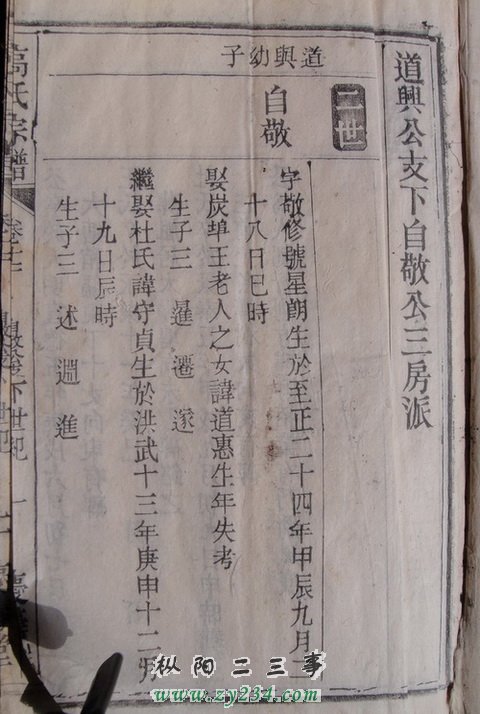 道興公支下自敬公三房派
二世
道興幼子
自敬
字敬修號星朗生於至正二十四年甲辰九月
十八日巳時
娶炭埠王老人之女諱道惠生年失考
生子三 暹 遷 邃
繼娶杜氏諱守貞生於洪武十三年庚申十二月
十九日辰時
生子三 述 淵 進
高氏宗譜
下世紀
枞阳二三事
www.zy234.com